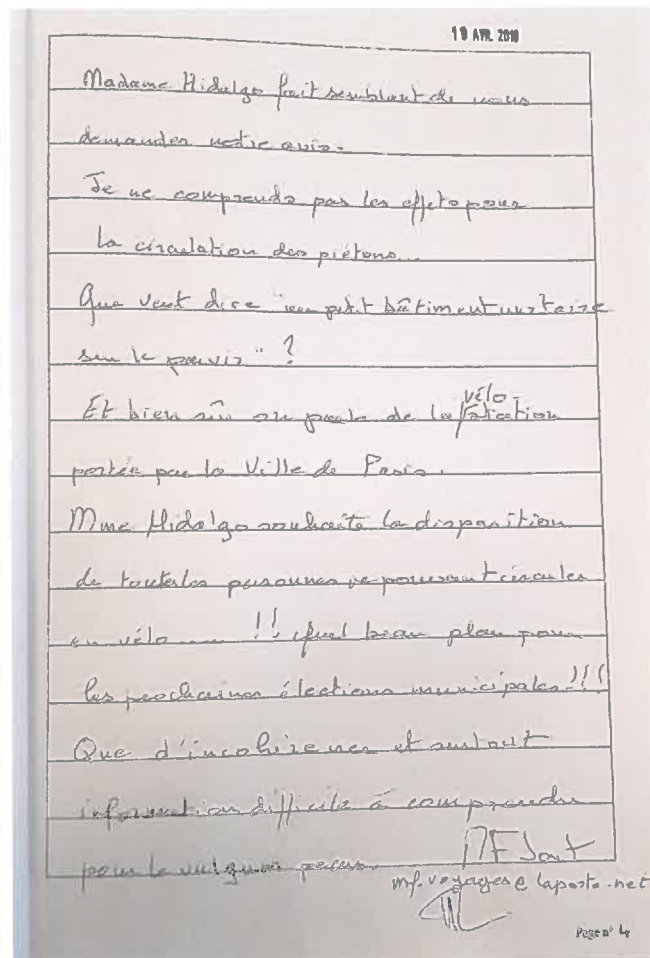 19 AVR. 2019
Madame Hidalgo fait semblant de nous
demander notre avis.
Je ne comprends pas les effets pour
la circulation des piétons...
Que veut dire "un petit bâtiment
sur le parvis" ?
Et bien sûr on parle de la vélo
portée par la Ville de Paris.
Mme Hidalgo souhaite la disparition
de toutes les personnes ne pouvant circuler
en vélo !! Quel beau plan pour
les prochaines élections municipales !!!
Que d'incohérences et surtout
information difficile à comprendre
pour le vulgum pecus.
mf.voyages@laposte.net
Page n° 4